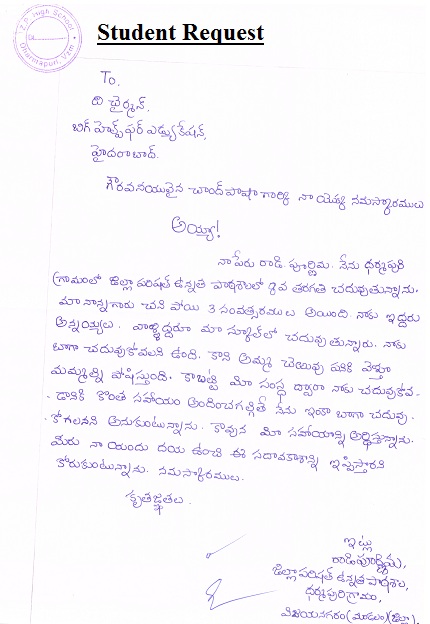 Student Request
Z.P. High School
Dharmapuri, Vzm
To,
ది ఛైర్మన్,
బిగ్ హెల్ప్ ఫర్ ఎడ్యుకేషన్,
హైదరాబాద్.
గౌరవనీయులైన చాంద్ పాషా గార్కి నా యొక్క నమస్కారములు
అయ్యా!
నా పేరు రాడి. పూర్ణిమ. నేను ధర్మపురి
గ్రామంలో జిల్లా పరిషత్ ఉన్నత పాఠశాలలో 8వ తరగతి చదువుతున్నాను.
మా నాన్నగారు చని పోయి 3 సంవత్సరములు అయింది. నాకు ఇద్దరు
అన్నయ్యలు. వాళ్ళిద్దరూ మా స్కూల్‌లో చదువుతున్నారు. నాకు
బాగా చదువుకోవలని ఉంది. కాని అమ్మ పనికి వెళ్తూ
మమ్మల్ని పోషిస్తుంది. కాబట్టి మీ సంస్థ ద్వారా నాకు చదువుకోవ-
-డానికి కొంత సహాయం అందించగల్గితే నేను ఇంకా బాగా చదువు-
-కోగలనని అనుకుంటున్నాను. కావున మీ సహాయాన్ని అర్థిస్తున్నాను.
మీరు నా యందు దయ ఉంచి ఈ సదావకాశాన్ని ఇప్పిస్తారని
కోరుకుంటున్నాను. నమస్కారములు.
కృతజ్ఞతలు.
ఇట్లు
రాడి పూర్ణిమ,
జిల్లా పరిషత్ ఉన్నత పాఠశాల,
ధర్మపురి గ్రామం,
విజయనగరం (మండలం) (జిల్లా).